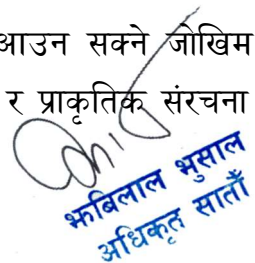 आउन सक्ने जोखिम
र प्राकृतिक संरचना
झबिलाल भुसाल
अधिकृत सातौँ